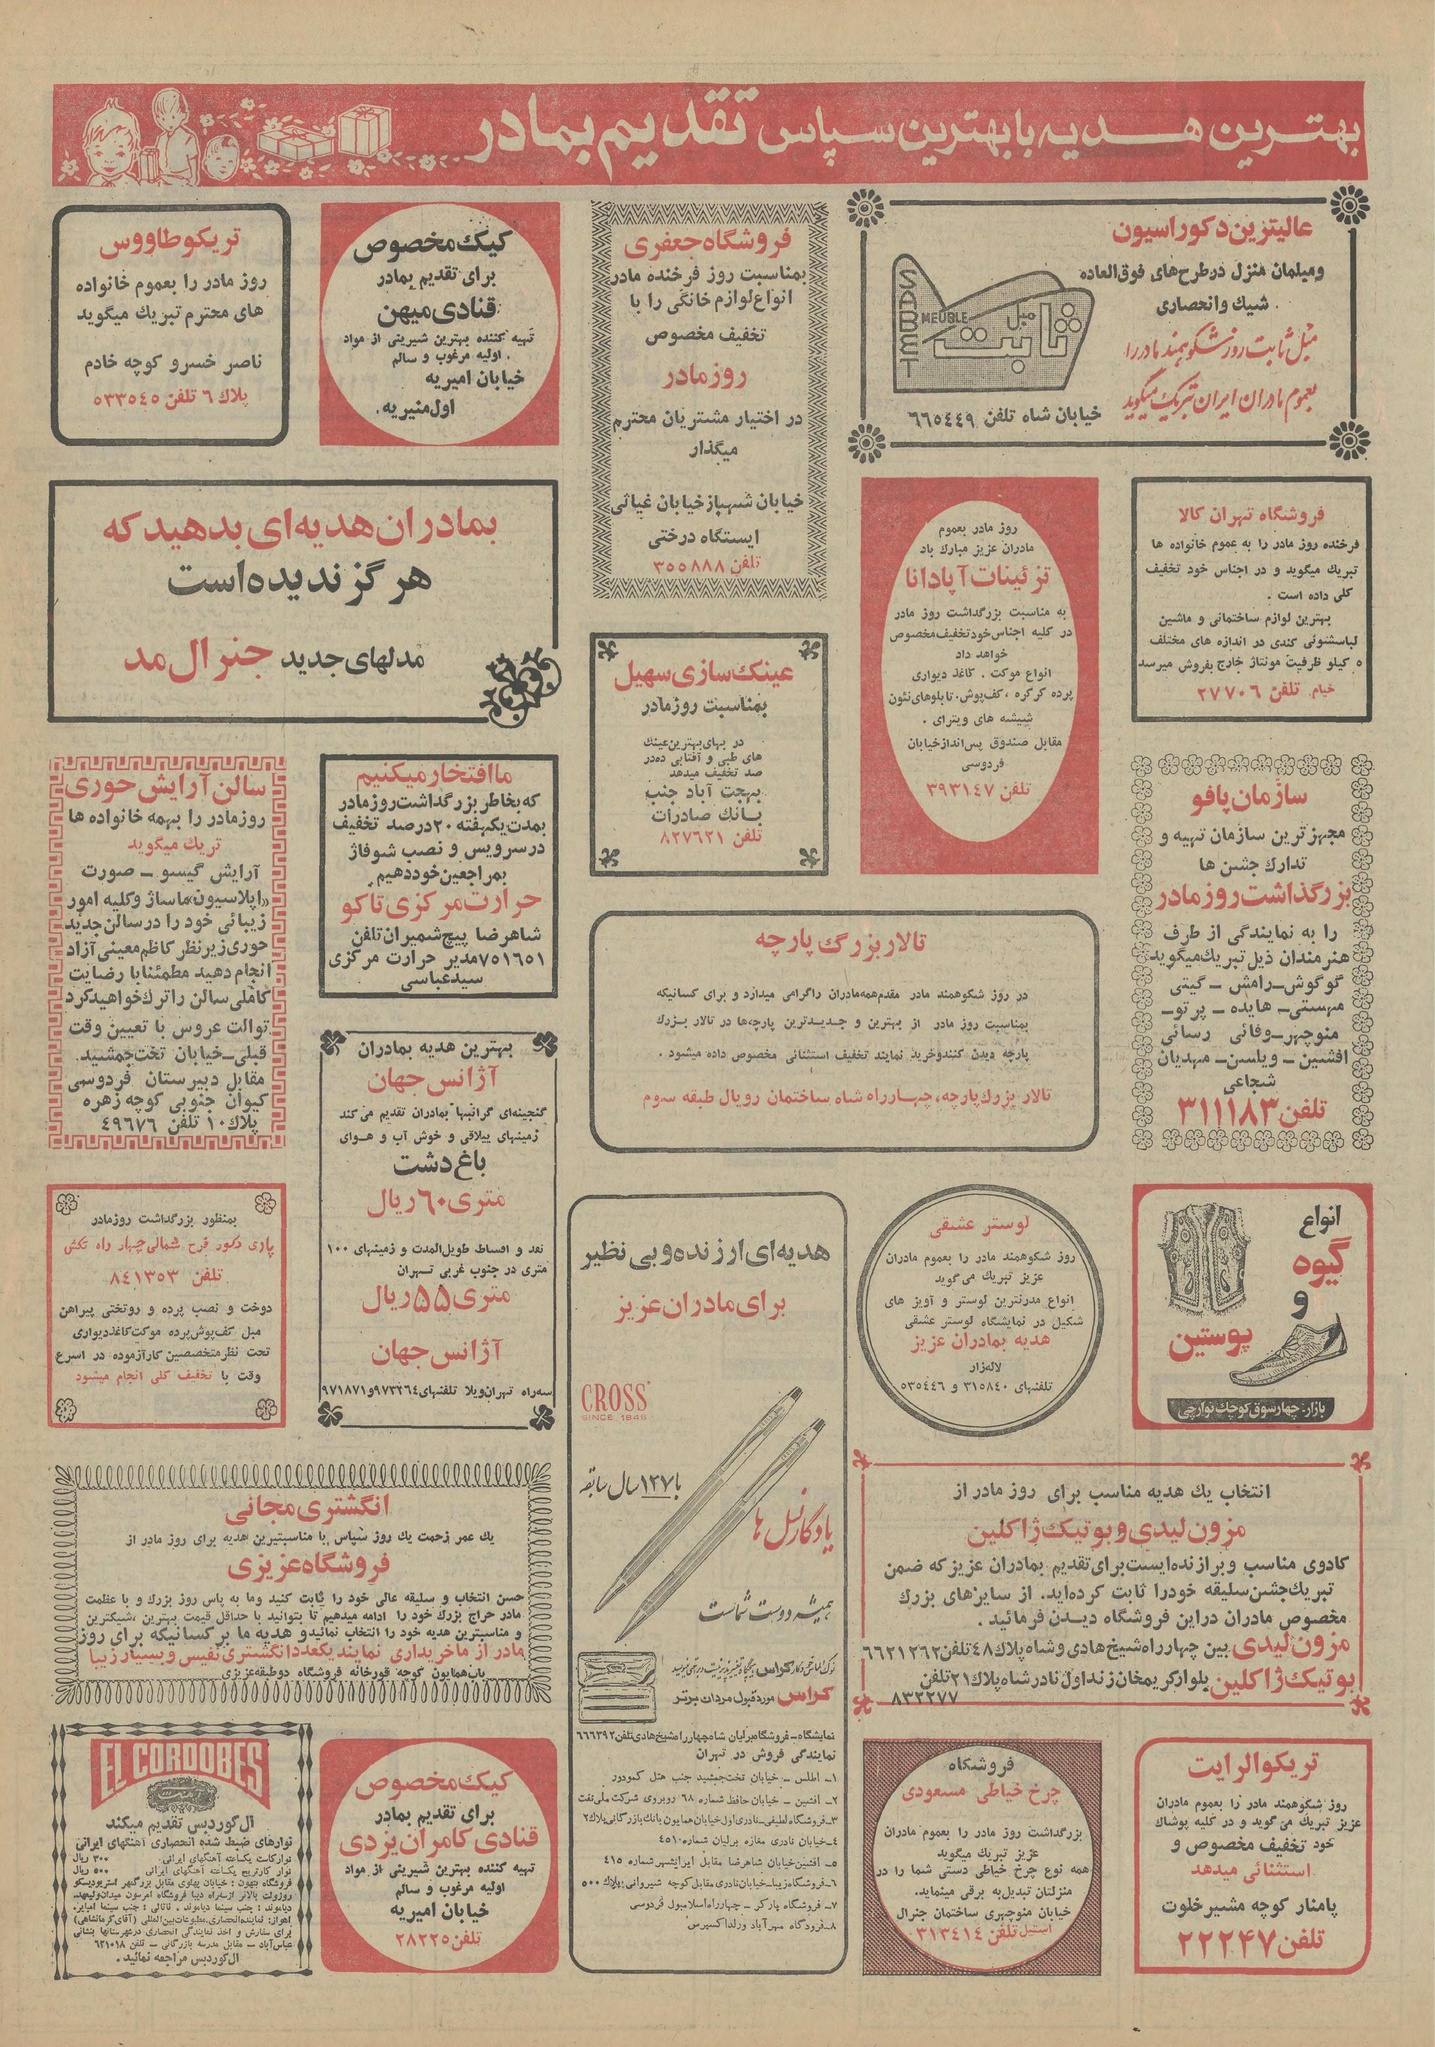 بهترین هدیه با بهترین سپاس تقدیم بمادر
عالیترین دکوراسیون
ومبلمان منزل درطرح‌های فوق‌العاده
شیک وانحصاری
مبل ثابت روز شکوهمند مادر را
بعموم مادران ایران تبریک میگوید
SABET
MEUBLE
مبل ثابت
خیابان شاه تلفن ۶۶۵۴۴۹
فروشگاه جعفری
بمناسبت روز فرخنده مادر
انواع لوازم خانگی را با
تخفیف مخصوص
روز مادر
در اختیار مشتریان محترم
میگذار
خیابان شهباز خیابان غیاثی
ایستگاه درختی
تلفن ۳۵۵۸۸۸
کیک مخصوص
برای تقدیم بمادر
قنادی میهن
تهیه کننده بهترین شیرینی از مواد
اولیه مرغوب و سالم .
خیابان امیریه
اول منیریه.
تریکو طاووس
روز مادر را بعموم خانواده
های محترم تبریك میگوید
ناصر خسرو کوچه خادم
پلاك ۶ تلفن ۵۳۳۵۴۵
فروشگاه تهران کالا
فرخنده روز مادر را به عموم خانواده ها
تبریك میگوید و در اجناس خود تخفیف
کلی داده است .
بهترین لوازم ساختمانی و ماشین
لباسشوئی کندی در اندازه های مختلف
۵ کیلو ظرفیت مونتاژ خارج بفروش میرسد
خیام تلفن ۲۷۷۰۶
روز مادر بعموم
مادران عزیز مبارك باد
تزئینات آپادانا
به مناسبت بزرگداشت روز مادر
در کلیه اجناس خود تخفیف مخصوص
خواهد داد
انواع موکت . کاغذ دیواری
پرده کرکره ، کف‌پوش . تابلوهای نئون
شیشه های ویترای .
مقابل صندوق پس‌انداز خیابان
فردوسی
تلفن ۳۹۳۱۴۷
بمادران هدیه‌ای بدهید که
هرگز ندیده است
مدلهای جدید جنرال مد
عینك سازی سهیل
بمناسبت روز مادر
در بهای بهترین عینك
های طبی و آفتابی ده در
صد تخفیف میدهد
بهجت آباد جنب
بانك صادرات
تلفن ۸۲۷۶۲۱
سازمان پافو
مجهزترین سازمان تهیه و
تدارك جشن ها
بزرگذاشت روز مادر
را به نمایندگی از طرف
هنرمندان ذیل تبریك میگوید
گوگوش - رامش - گیتی
مهستی - هایده - پرتو -
منوچهر - وفائی رسائی
افشین - ویلسن - مهدیان
شجاعی
تلفن ۳۱۱۱۸۳
ما افتخار میکنیم
که بخاطر بزرگداشت روز مادر
بمدت یکهفته ۲۰ درصد تخفیف
در سرویس و نصب شوفاژ
بمراجعین خود دهیم
حرارت مرکزی تاکو
شاهرضا پیچ شمیران تلفن
۷۵۱۶۵۱ مدیر حرارت مرکزی
سید عباسی
سالن آرایش حوری
روز مادر را بهمه خانواده ها
تریك میگوید
آرایش گیسو - صورت
«اپلاسیون» ماساژ وکلیه امور
زیبائی خود را در سالن جدید
حوری زیر نظر کاظم معینی آزاد
انجام دهید مطمئنا با رضایت
کاملی سالن را ترك خواهید کرد
توالت عروس با تعیین وقت
قبلی - خیابان تخت جمشید
مقابل دبیرستان فردوسی
کیوان جنوبی کوچه زهره
پلاك ۱۰ تلفن ۴۹۶۷۶
تالار بزرگ پارچه
در روز شکوهمند مادر مقدم همه مادران را گرامی میدارد و برای کسانیکه
بمناسبت روز مادر از بهترین و جدیدترین پارچه‌ها در تالار بزرك
پارچه دیدن کنند و خرید نمایند تخفیف استثنائی مخصوص داده میشود .
تالار بزرك پارچه، چهارراه شاه ساختمان رویال طبقه سوم
بهترین هدیه بمادران
آژانس جهان
گنجینه‌ای گرانبها بمادران تقدیم می کند
زمینهای ییلاقی و خوش آب و هوای
باغ دشت
متری ۶۰ ریال
نقد و اقساط طویل‌المدت و زمینهای ۱۰۰
متری در جنوب غربی تهران
متری ۵۵ ریال
آژانس جهان
سه راه تهران ویلا تلفنهای ۹۷۳۲۶۴ و ۹۷۱۸۷۱
بمنظور بزرگداشت روز مادر
پاری دکور فرح شمالی چهار راه تکش
تلفن ۸۴۱۳۵۳
دوخت و نصب پرده و روتختی پیراهن
مبل کف‌پوش پرده موکت کاغذ دیواری
تحت نظر متخصصین کارآزموده در اسرع
وقت با تخفیف کلی انجام میشود
انواع
گیوه
و
پوستین
بازار: چهارسوق کوچك نوارچی
لوستر عشقی
روز شکوهمند مادر را بعموم مادران
عزیز تبریك می گوید
انواع مدرنترین لوستر و آویز های
شکیل در نمایشگاه لوستر عشقی
هدیه بمادران عزیز
لاله‌زار
تلفنهای ۳۱۵۸۴۰ و ۵۳۵۴۴۶
هدیه‌ای ارزنده و بی نظیر
برای مادران عزیز
CROSS
SINCE 1846
با ۱۲۷ سال سابقه
یادگار نسل ها
همیشه دوست شماست
کراس مورد قبول مردان برتر
نمایشگاه - فروشگاه برلیان شاه چهارراه شیخ هادی تلفن ۶۶۶۳۹۲
نمایندگی فروش در تهران
۱- اطلس - خیابان تخت جمشید جنب هتل کمودور
۲- افشین - خیابان حافظ شماره ۶۸ روبروی شرکت ملی نفت
۳- فروشگاه لطیفی - نادری اول خیابان همایون بانك بازرگانی پلاك ۲
۴- خیابان نادری مغازه برلیان شماره ۴۵۱۰
۵- افشین خیابان شاهرضا مقابل ایرانشهر شماره ۴۱۵
۶- فروشگاه زیبا - خیابان نادری مقابل کوچه شیروانی پلاك ۵۰۰
۷- فروشگاه پارکر - چهارراه اسلامبول فردوسی
۸- فرودگاه مهرآباد ورلد اکسپرس
انتخاب یك هدیه مناسب برای روز مادر از
مزون لیدی و بوتیك ژاکلین
کادوی مناسب و برازنده ایست برای تقدیم بمادران عزیز که ضمن
تبریك جشن سلیقه خود را ثابت کرده‌اید. از سایزهای بزرك
مخصوص مادران در این فروشگاه دیدن فرمائید .
مزون لیدی بین چهارراه شیخ هادی و شاه پلاك ۴۸ تلفن ۶۶۲۱۲۶۲
بوتیك ژاکلین بلوار کریمخان زند اول نادر شاه پلاك ۲۱ تلفن
۸۳۲۲۷۷
انگشتری مجانی
یك عمر زحمت یك روز سپاس با مناسبترین هدیه برای روز مادر از
فروشگاه عزیزی
حسن انتخاب و سلیقه عالی خود را ثابت کنید وما به پاس روز بزرك و با عظمت
مادر حراج بزرك خود را ادامه میدهیم تا بتوانید با حداقل قیمت بهترین ، شیکترین
و مناسبترین هدیه خود را انتخاب نمائید و هدیه ما بر کسانیکه برای روز
مادر از ما خریداری نمایند یکعدد انگشتری نفیس و بسیار زیبا
باب همایون کوچه قورخانه فروشگاه دو طبقه عزیزی
تریکو الرایت
روز شکوهمند مادر را بعموم مادران
عزیز تبریك می گوید و در کلیه پوشاك
خود تخفیف مخصوص و
استثنائی میدهد
پامنار کوچه مشیر خلوت
تلفن ۲۲۲۴۷
فروشگاه
چرخ خیاطی مسعودی
بزرگداشت روز مادر را بعموم مادران
عزیز تبریك میگوید
همه نوع چرخ خیاطی دستی شما را در
منزلتان تبدیل به برقی مینماید.
خیابان منوچهری ساختمان جنرال
استیل تلفن ۳۱۳۴۱۴
کیک مخصوص
برای تقدیم بمادر
قنادی کامران یزدی
تهیه کننده بهترین شیرینی از مواد
اولیه مرغوب و سالم
خیابان امیریه
تلفن ۲۸۲۲۵
EL CORDOBES
ال کوردبس تقدیم میکند
نوارهای ضبط شده انحصاری آهنگهای ایرانی
نوار کاست یکساعته آهنگهای ایرانی ۳۰۰ ریال
نوار کارتریج یکساعته آهنگهای ایرانی ۵۰۰ ریال
فروشگاه بتهون : خیابان پهلوی مقابل بزرگمهر استریو دیسکو
روزولت بالاتر از سه‌راه دنیا فروشگاه امرسون میدان ولیعهد.
دیاموند : جنب سینما دیاموند . ناتالی : جنب سینما امپایر.
برای سفارش و اخذ نمایندگی انحصاری در شهرستانها بنشانی
عباس‌آباد - مقابل مدرسه بازرگانی - تلفن ۶۲۱۰۱۸
ال کوردبس مراجعه نمائید .